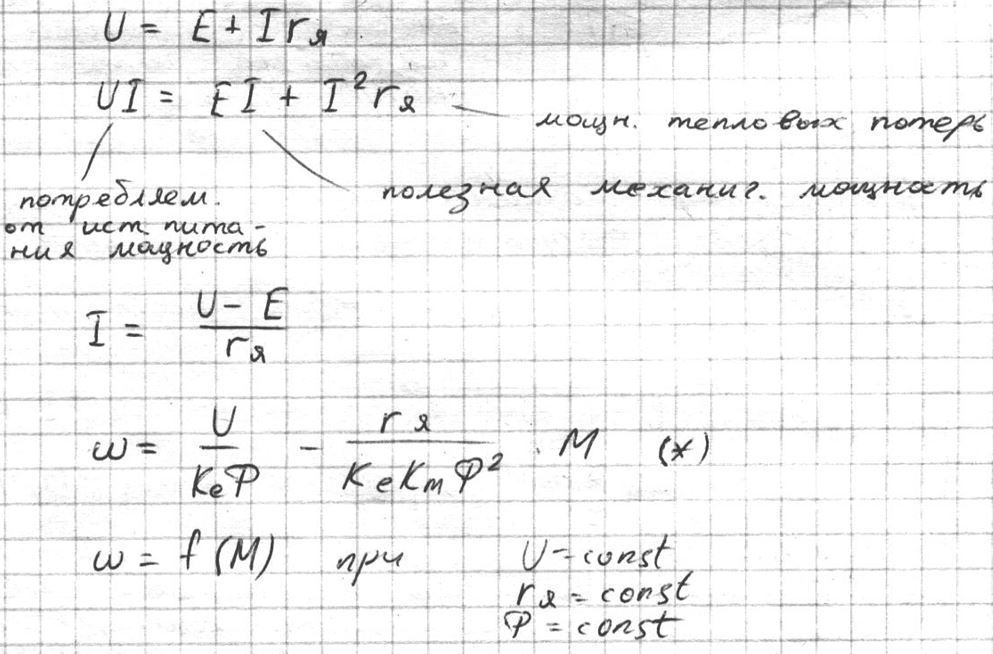 U = E + I rя
UI = EI + I² rя
мощн. тепловых потерь
полезная механич. мощность
потребляем.
от ист. пита-
ния мощность
I = (U - E) / rя
ω = U / (KeФ) - rя / (KeKmФ²) · M (*)
ω = f(M) при U = const
rя = const
Ф = const